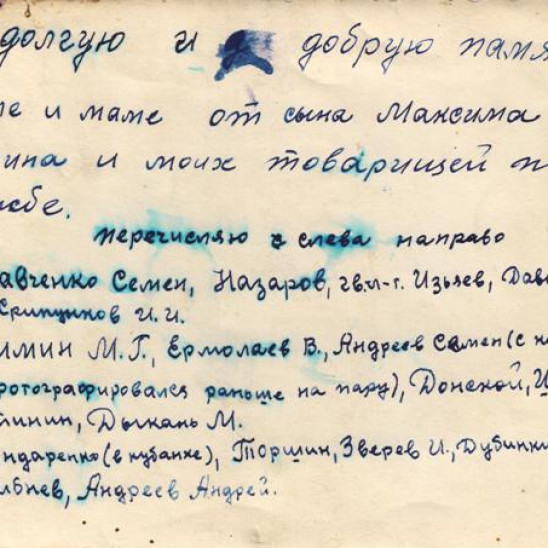 долгую и добрую памя
пе и маме от сына Максима
ина и моих товарищей п
жбе.
перечисляю с слева направо
авченко Семен, Назаров, гв.л-т. Изъяев, Дав
Скрипников И.И.
имин М.Г., Ермолаев В., Андреев Семен (с н
фотографировался раньше на пару), Донской,
тинин, Дыкань М.
ндаренко (в кубанке), Торшин, Зверев И., Дубинки
лбнев, Андреев Андрей.